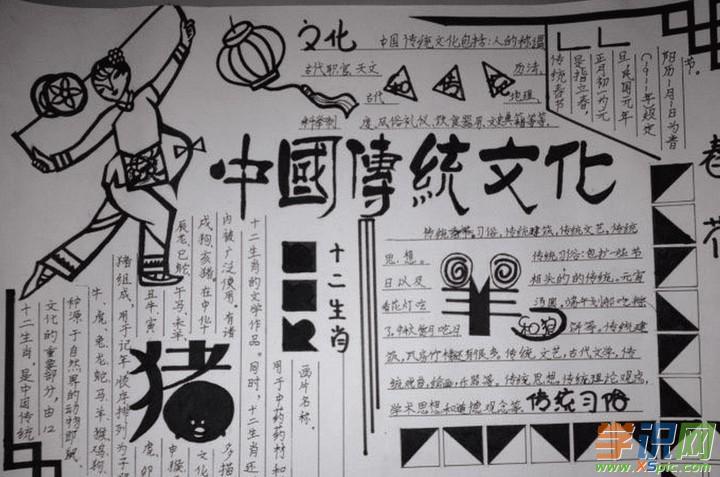 文化
中国传统文化包括:人的称谓
古代职官、天文
历法、
古代
地理、
科举制
度、风俗礼仪、饮食器用、文史典籍等等。
传统春节
是指立春,
正月初一为元
旦,民国元年
(1911年)规定
阳历1月1日为
节。
中國傳統文化
十二生肖
十二生肖,是中国传统
文化的重要部分,由12
种源于自然界的动物即鼠、
牛、虎、兔龙蛇马羊、猴鸡狗、
猪组成,用于记年,顺序排列为子
丑牛、寅
虎、卯
辰龙巳蛇、午马、未羊、
申猴
戌狗、亥猪,在中化
文化
内被广泛使用。有诸
多描
十二生肖的文学作品。同时,十二生肖还
用于中药药材和
画片名称。
猪
习俗,传统建筑,传统文艺,传统
思想。
传统习俗:包扩一些节
日以及
相关的的传统。元宵
看花灯吃
汤圆,端午划船吃粽
子,中秋赏月吃月
和狗
饼等。传统建
筑,瓦房竹楼还有很多。传统文艺,古代文学,传
统戏曲,绘画,乐器等。传统思想,传统理论观念,
学术思想和道德观念等。
传统习俗
春
学识网
www.XSpic.com